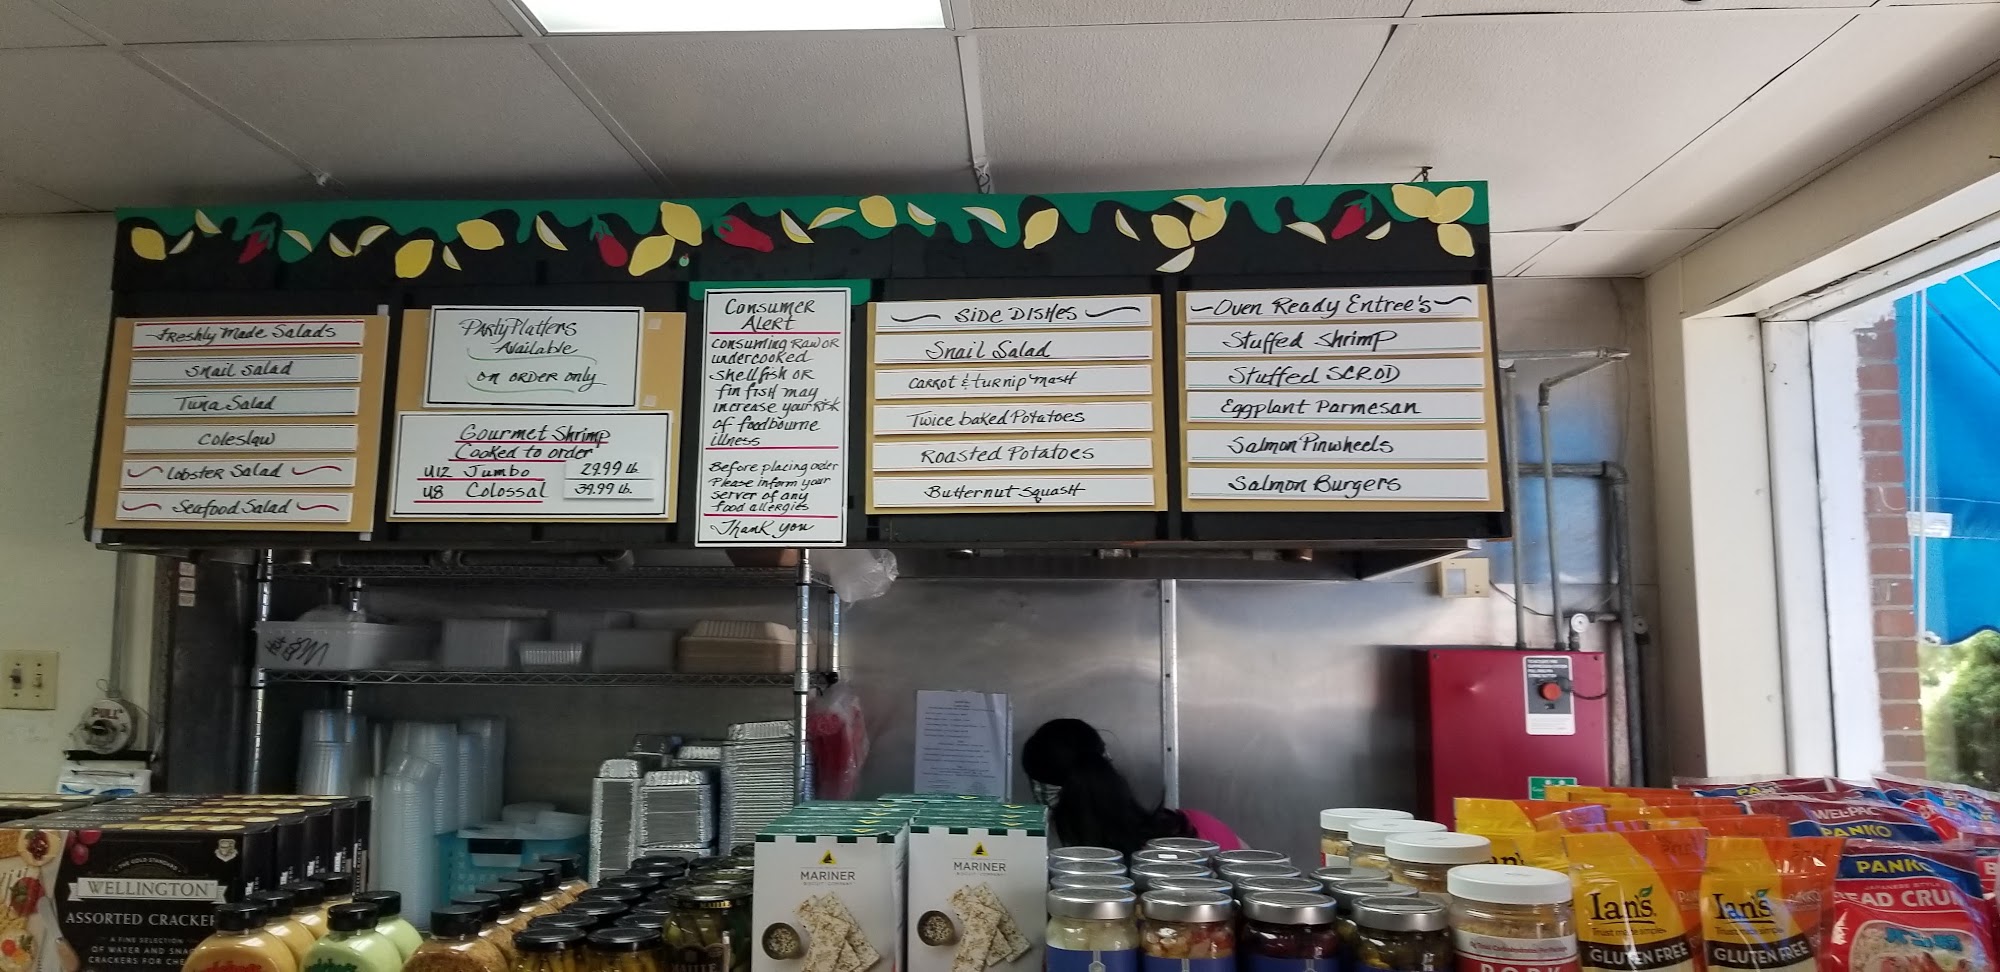 Freshly Made Salads
Snail Salad
Tuna Salad
Coleslaw
Lobster Salad
Seafood Salad
Party Platters
Available
on order only
Gourmet Shrimp
Cooked to order
U12 Jumbo 29.99 lb.
U8 Colossal 39.99 lb.
Consumer
Alert
Consuming Raw or
undercooked
shellfish or
fin fish may
increase your risk
of foodbourne
illness
Before placing order
Please inform your
server of any
food allergies
Thank you
Side Dishes
Snail Salad
Carrot & turnip mash
Twice baked Potatoes
Roasted Potatoes
Butternut Squash
Oven Ready Entree's
Stuffed Shrimp
Stuffed SCROD
Eggplant Parmesan
Salmon Pinwheels
Salmon Burgers
PULL
WELLINGTON
ASSORTED CRACKER
A FINE SELECTION
OF WATER AND SNA
CRACKERS FOR CHE
MARINER
BISCUIT COMPANY
MARINER
BISCUIT COMPANY
PORK
Ian's
GLUTEN FREE
Ian's
GLUTEN FREE
WEL-PAC
PANKO
PANKO
EAD CRUM